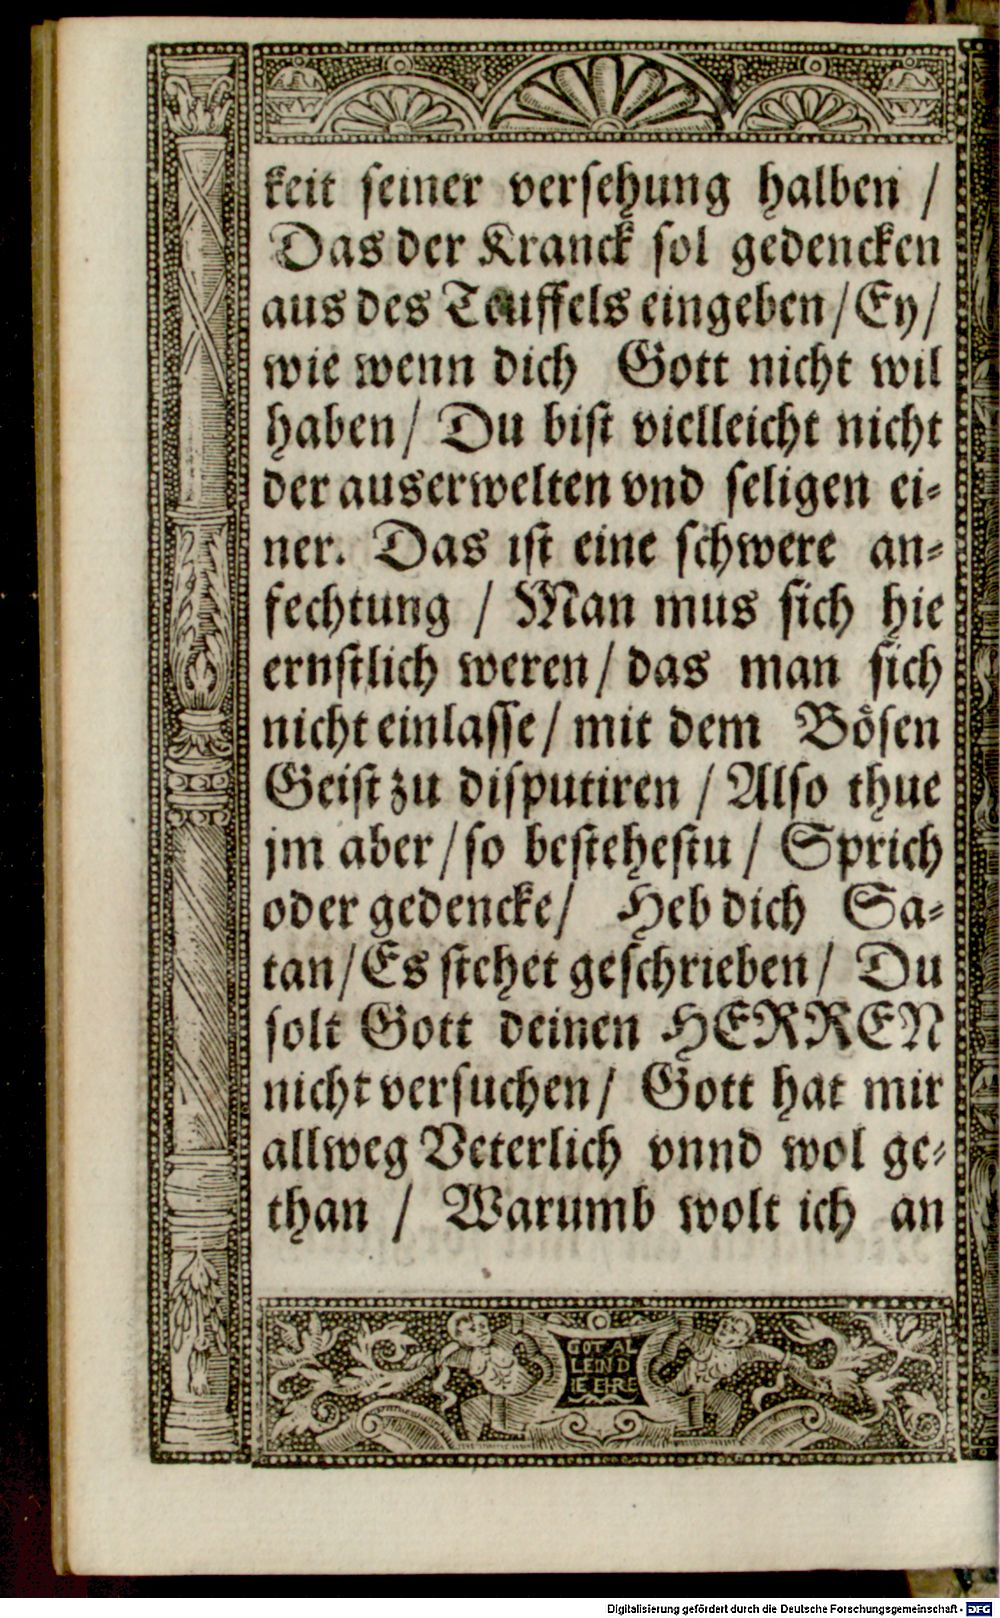 keit seiner versehung halben /
Das der Kranck sol gedencken
aus des Teuffels eingeben / Ey /
wie wenn dich Gott nicht wil
haben / Du bist vielleicht nicht
der auserwelten vnd seligen ei-
ner. Das ist eine schwere an-
fechtung / Man mus sich hie
ernstlich weren / das man sich
nicht einlasse / mit dem Bösen
Geist zu disputiren / Also thue
jm aber / so bestehestu / Sprich
oder gedencke / Heb dich Sa-
tan / Es stehet geschrieben / Du
solt Gott deinen HERREN
nicht versuchen / Gott hat mir
allweg Veterlich vnnd wol ge-
than / Warumb wolt ich an
GOT AL
LEIN D
IE EIRE
Digitalisierung gefördert durch die Deutsche Forschungsgemeinschaft - DFG